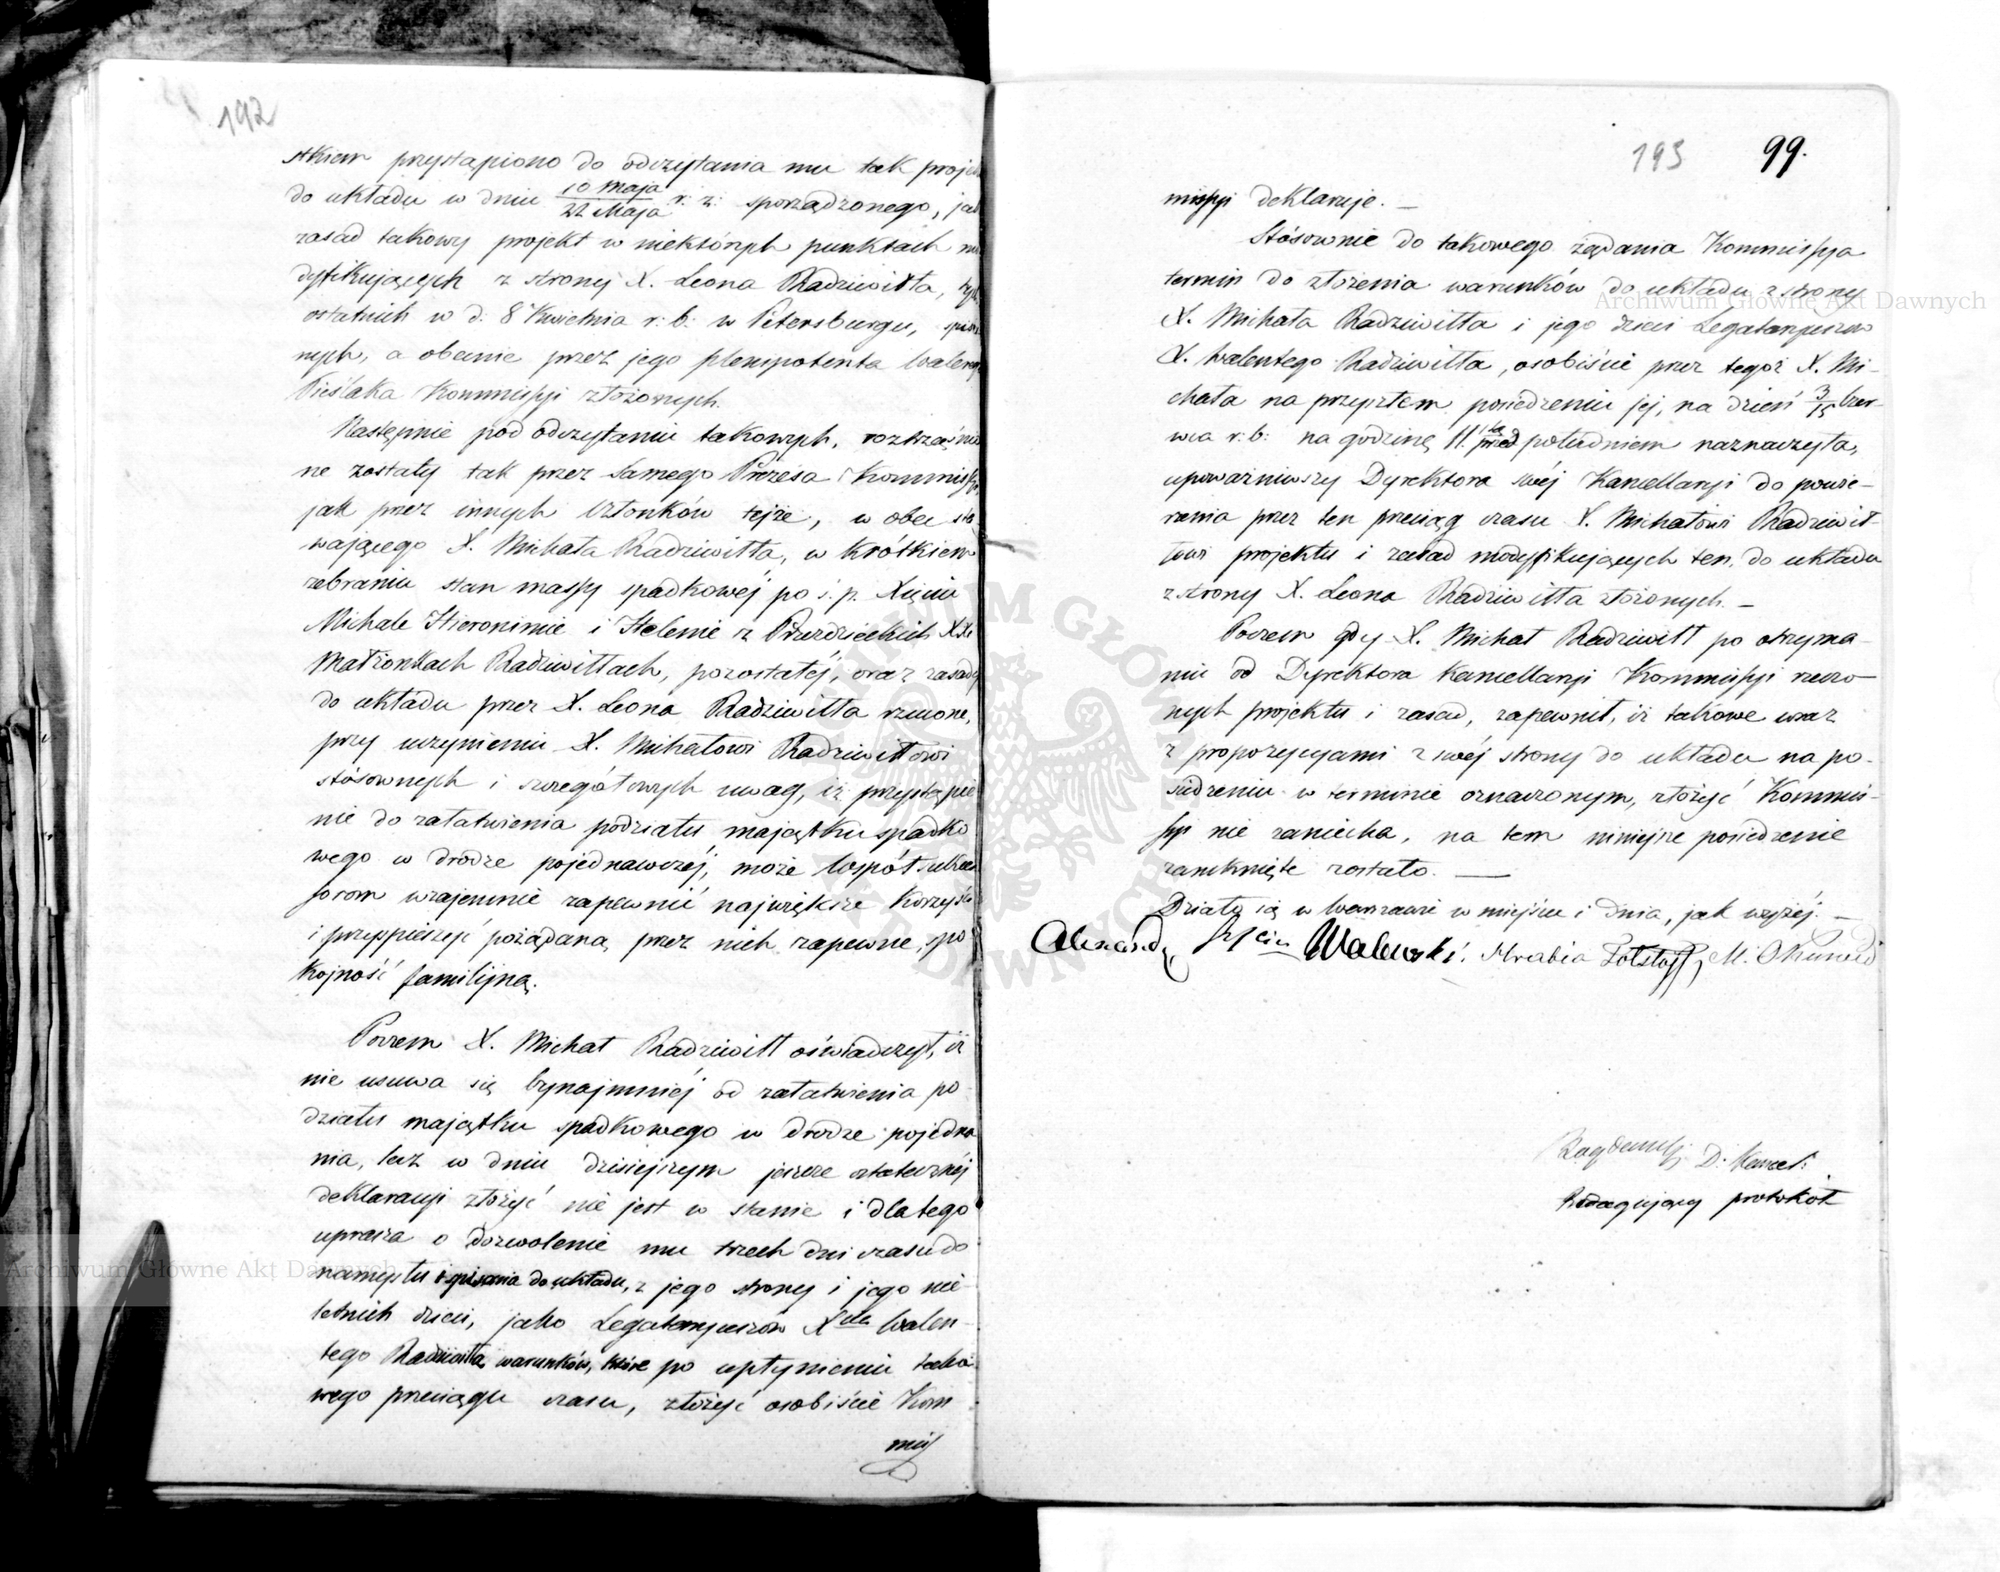 192
stkiem przystąpiono do odczytania mu tak projek
do układu w dniu 10 Maja/22 Maja r: z: sporządzonego, jak
zasad takowy projekt w niektórych punktach mo
dyfikujących z strony X. Leona Radziwiłła, tych
ostatnich w d: 8 Kwietnia r: b: w Petersburgu, spisa
nych, a obecnie przez jego plenipotenta Walerego
Pieślaka Kommissyi złożonych.
Następnie pod odczytaniu takowych, roztrząśnio
ne zostały tak przez samego Prezesa Kommissyi
jak przez innych Członków tejże, w obec sta
wającego X. Michała Radziwiłła, w krótkiem
zebraniu stan massy spadkowej po ś. p. Xięciu
Michale Hieronimie i Helenie z Przezdzieckich XX.
Małżonkach Radziwiłłach, pozostałej, oraz zasady
do układu przez X. Leona Radziwiłła rzucone,
przy uczynieniu X. Michałowi Radziwiłłowi
stósownych i szczegółowych uwag, iż przystąpie
nie do załatwienia podziału majątku spadko
wego w drodze pojednawczéj, może współsukces
sorom wzajemnie zapewnić największe korzyści
i przyspieszyć pożądaną przez nich zapewne, spo
kojność familijną.
Poczem X. Michał Radziwiłł oświadczył, iż
nie usuwa się bynajmniéj od załatwienia po
działu majątku spadkowego w drodze pojedna
nia, lecz w dniu dzisiejszym jeszcze ostatecznéj
deklaracyi złożyć nie jest w stanie i dlatego
uprasza o dozwolenie mu trzech dni czasu do
namysłu i spisania do układu, z jego strony i jego nie
letnich dzieci, jako Legataryuszów X^cia Walen-
tego Radziwiłła, warunków, które po upłynieniu tako
wego przeciągu czasu, złożyć osobiście Kom
miss
193 99.
missyi deklaruje. —
Stósownie do takowego żądania Kommissya
termin do złożenia warunków do układu z strony
X. Michała Radziwiłła i jego dzieci Legataryuszów
X. Walentego Radziwiłła, osobiście przez tegoż X. Mi-
chała na przyszłem posiedzeniu jej, na dzień 3/15 Czer-
wca r: b: na godzinę 11^tą przed południem naznaczyła,
upoważniwszy Dyrektora swéj Kancellaryi do powie-
rzenia przez ten przeciąg czasu X. Michałowi Radziwił-
łowi projektu i zasad modyfikujących ten, do układu
z strony X. Leona Radziwiłła złożonych. —
Poczem gdy X. Michał Radziwiłł po otrzyma-
niu od Dyrektora Kancellaryi Kommissyi rzeczo-
nych projektu i zasad, zapewnił, iż takowe wraz
z propozycyami z swéj strony do układu na po-
siedzeniu w terminie oznaczonym, złożyć Kommis-
syi nie zaniecha, na tem niniejsze posiedzenie
zamknięte zostało. —
Działo się w Warszawie w miejscu i dnia, jak wyżéj. —
Alexander Walewski. Hrabia Tołstoff, M.
D: Kancel:
Redagujący protokół
Archiwum Główne Akt Dawnych
Archiwum Główne Akt Dawnych